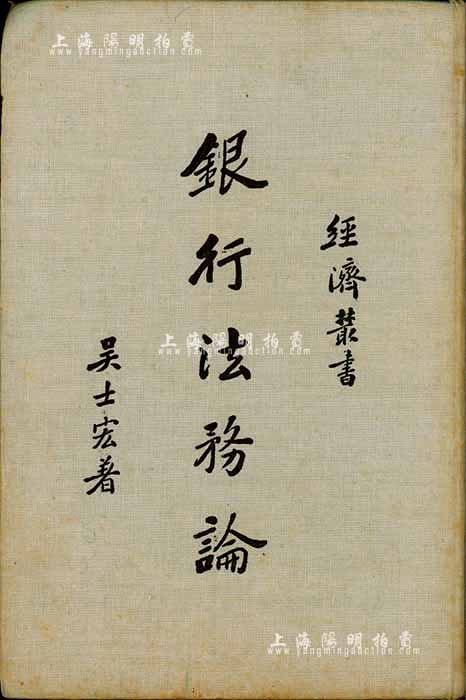 上海陽明拍賣
www.yangmingauction.com
經濟叢書
銀行法務論
吴士宏著
上海陽明拍賣
www.yangmingauction.com
上海陽明拍賣
www.yangmingauction.com